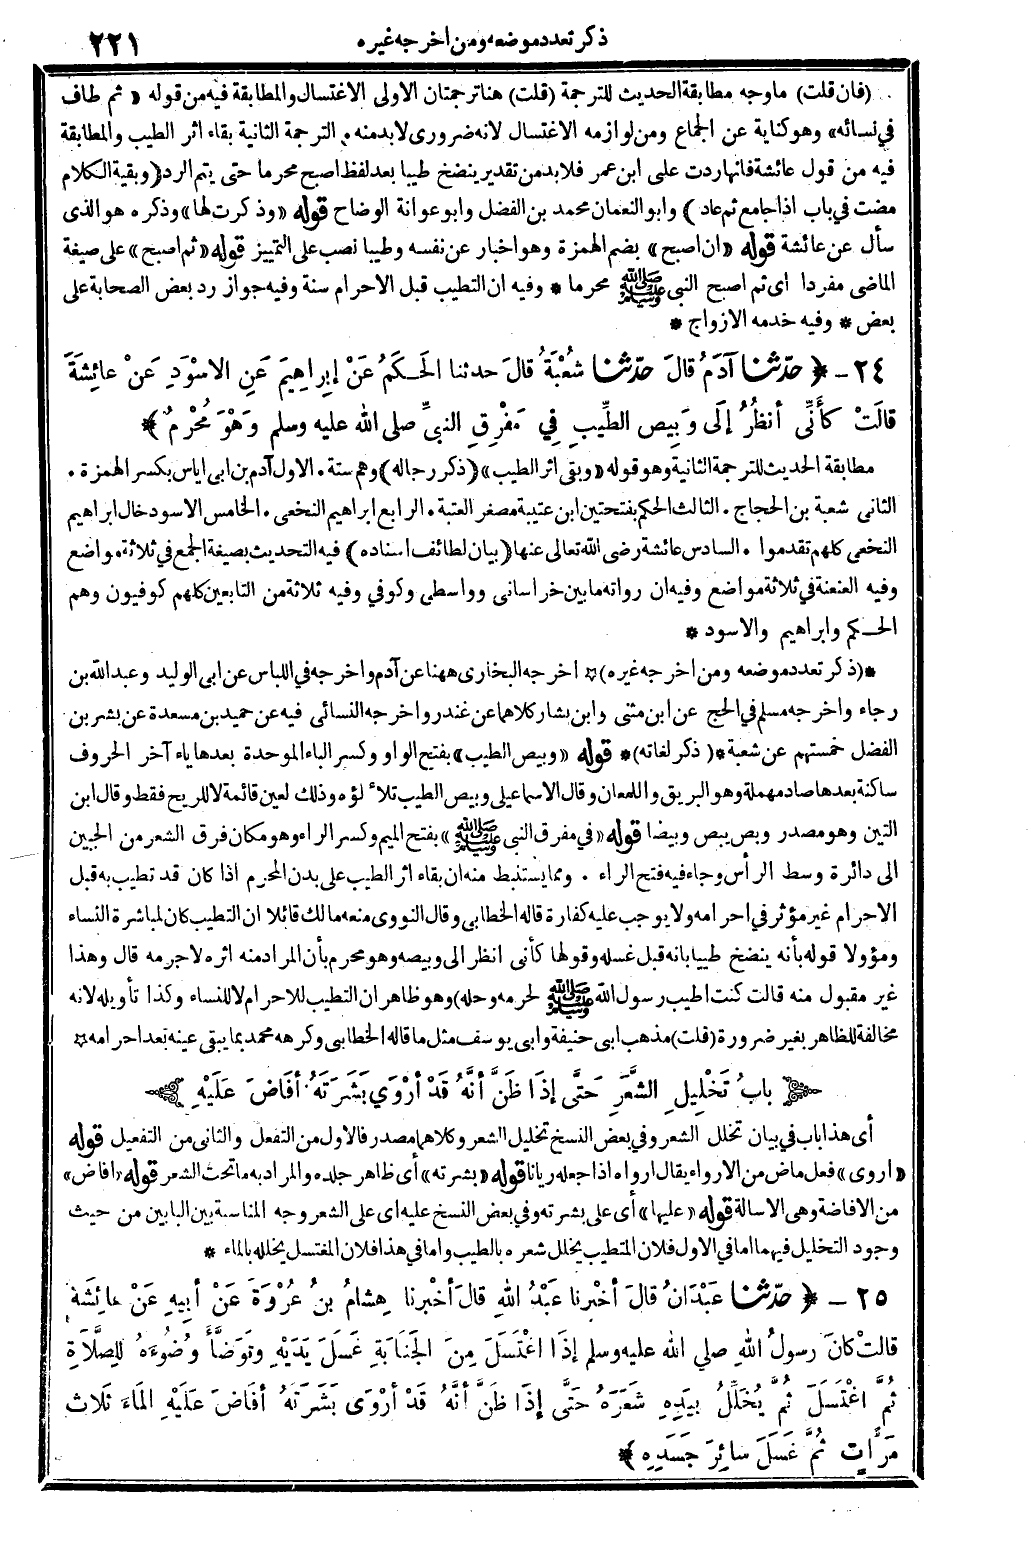 ذكر تعدد موضعه ومن اخرجه غيره
٢٢١
(فان قلت) ما وجه مطابقة الحديث للترجمة (قلت) هنا ترجمتان الاولى الاغتسال والمطابقة فيه من قوله «ثم طاف
في نسائه» وهو كناية عن الجماع ومن لوازمه الاغتسال لانه ضرورى لا بد منه. الترجمة الثانية بقاء اثر الطيب والمطابقة
فيه من قول عائشة فانها ردت على ابن عمر فلابد من تقدير ينضخ طيبا بعد لفظ اصبح محرما حتى يتم الرد (وبقية الكلام
مضت في باب اذا جامع ثم عاد) وابو النعمان محمد بن الفضل وابو عوانة الوضاح قوله «وذكرت لها» وذكره هو الذى
سأل عن عائشة قوله «ان اصبح» بضم الهمزة وهو اخبار عن نفسه وطيبا نصب على التمييز قوله «ثم اصبح» على صيغة
الماضى مفردا اى ثم اصبح النبى ﷺ محرما * وفيه ان التطيب قبل الاحرام سنة وفيه جواز رد بعض الصحابة على
بعض * وفيه خدمه الازواج *
٢٤ - ﴿ حَدّثنا آدَمُ قالَ حَدّثنا شُعْبَةُ قالَ حدثنا الحَكَمُ عَنْ إبراهِيمَ عَنِ الاسْوَدِ عَنْ عائِشَةَ
قالَتْ كأَنِّى أنظُرُ إلَى وَبِيصِ الطِّيبِ فِي مَفْرِقِ النبىِّ صلى الله عليه وسلم وَهْوَ مُحْرِمٌ ﴾
مطابقة الحديث للترجمة الثانية وهو قوله «وبقى اثر الطيب» (ذكر رجاله) وهم ستة. الاول آدم بن ابى اياس بكسر الهمزة.
الثانى شعبة بن الحجاج. الثالث الحكم بفتحتين ابن عتيبة مصغر العتبة. الرابع ابراهيم النخعى. الخامس الاسود خال ابراهيم
النخعى كلهم تقدموا. السادس عائشة رضى الله تعالى عنها (بيان لطائف اسناده) فيه التحديث بصيغة الجمع في ثلاثة مواضع
وفيه العنعنة في ثلاثة مواضع وفيه ان رواته ما بين خراسانى وواسطى وكوفي وفيه ثلاثة من التابعين كلهم كوفيون وهم
الحكم وابراهيم والاسود *
*(ذكر تعدد موضعه ومن اخرجه غيره)* اخرجه البخارى ههنا عن آدم واخرجه في اللباس عن ابى الوليد وعبد الله بن
رجاء واخرجه مسلم في الحج عن ابن مثنى وابن بشار كلاهما عن غندر واخرجه النسائى فيه عن حميد بن مسعدة عن بشر بن
الفضل خمستهم عن شعبة *(ذكر لغاته)* قوله «وبيص الطيب» بفتح الواو وكسر الباء الموحدة بعدها ياء آخر الحروف
ساكنة بعدها صاد مهملة وهو البريق واللمعان وقال الاسماعيلى وبيص الطيب تلألؤه وذلك لعين قائمة لا للريح فقط وقال ابن
التين وهو مصدر وبص يبص وبيصا قوله «في مفرق النبى ﷺ» بفتح الميم وكسر الراء وهو مكان فرق الشعر من الجبين
الى دائرة وسط الرأس وجاء فيه فتح الراء. ومما يستنبط منه ان بقاء اثر الطيب على بدن المحرم اذا كان قد تطيب به قبل
الاحرام غير مؤثر في احرامه ولا يوجب عليه كفارة قاله الخطابى وقال النووى منعه مالك قائلا ان التطيب كان لمباشرة النساء
ومؤولا قوله بأنه ينضخ طيبا بانه قبل غسله وقولها كأنى انظر الى وبيصه وهو محرم بأن المراد منه اثره لا جرمه قال وهذا
غير مقبول منه قالت كنت اطيب رسول الله ﷺ لحرمه وحله) وهو ظاهر ان التطيب للاحرام لا للنساء وكذا تأويله لانه
مخالفة للظاهر بغير ضرورة (قلت) مذهب ابى حنيفة وابى يوسف مثل ما قاله الخطابى وكرهه محمد بما يبقى عينه بعد احرامه *
﴿ بابُ تَخْلِيلِ الشَّعَرِ حَتَّى إذَا ظَنَّ أنَّهُ قَدْ أرْوَي بَشَرَتَهُ أفَاضَ عَلَيْهِ ﴾
أى هذا باب في بيان تخلل الشعر وفي بعض النسخ تخليل الشعر وكلاهما مصدر فالاول من التفعل والثانى من التفعيل قوله
«اروى» فعل ماض من الارواء يقال ارواه اذا جعله ريانا قوله «بشرته» أى ظاهر جلده والمراد به ما تحت الشعر قوله «افاض»
من الافاضة وهى الاسالة قوله «عليها» أى على بشرته وفي بعض النسخ عليه اى على الشعر وجه المناسبة بين البابين من حيث
وجود التخليل فيهما اما في الاول فلان المتطيب يخلل شعره بالطيب واما في هذا فلان المغتسل يخلله بالماء *
٢٥ - ﴿ حَدّثنا عَبْدَانُ قالَ أخْبرنا عَبْدُ اللهِ قالَ أخْبرنا هِشامُ بنُ عُرْوَةَ عَنْ أبِيهِ عَنْ عائِشَةَ
قالتْ كانَ رسولُ اللهِ صلي الله عليه وسلم إذَا اغْتَسَلَ مِنَ الجَنَابَةِ غَسَلَ يَدَيْهِ وتَوَضَّأَ وُضُوءَهُ لِلصَّلاَةِ
ثُمَّ اغْتَسَلَ ثُمَّ يُخَلِّلُ بِيَدِهِ شَعَرَهُ حَتَّى إذَا ظَنَّ أنَّهُ قَدْ أرْوَى بَشَرَتَهُ أفَاضَ عَلَيْهِ المَاءَ ثَلاَثَ
مَرَّاتٍ ثُمَّ غَسَلَ سائِرَ جَسَدِهِ ﴾